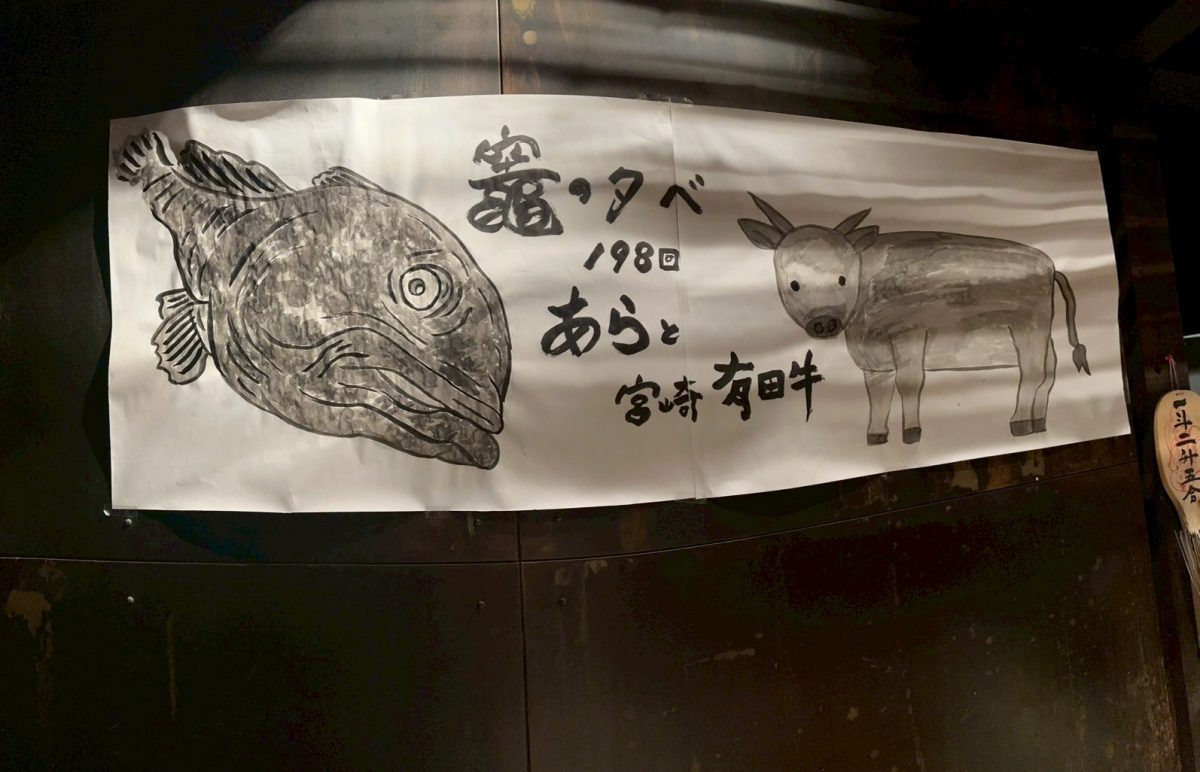 竈の夕べ
198回
あらと
宮崎有田牛
一斗二升五合